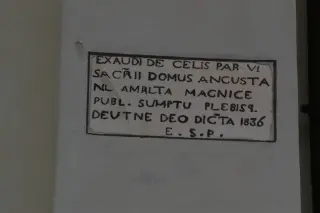 EXAUDI DE CELIS PAR VI
SACRII DOMUS ANCUSTA
NL AMPLTA MAGNICE
PUBL. SUMPTU PLEBISQ.
DEUTNE DEO DICTA 1836
E. S. P.